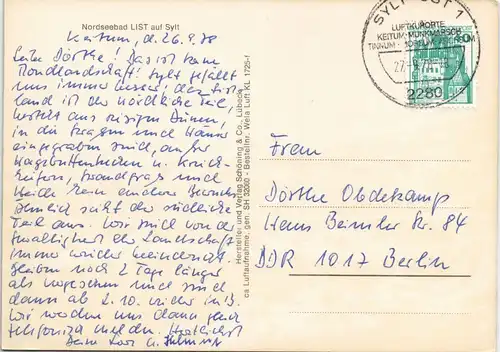 Nordseebad LIST auf Sylt
Keitum, d. 26.9.78
Liebe Dörthe! Das ist keine
Mondlandschaft! Sylt gefällt
uns immer besser, das hier
ist der nördliche Teil,
besteht aus riesigen Dünen,
in die Straßen und Häuser
eingegraben sind, außer
Hagebuttenhecken u.
Strandgras und
Heide kein anderer Bewuchs.
Ähnlich sieht der südliche
Teil aus. Wir sind von der
der Landschaft
immer wieder beeindruckt.
Bleiben noch 2 Tage länger
als vorgesehen und sind
dann ab 2.10. wieder in
Wir werden uns dann gleich
telefonisch melden. Herzlichst
Deine u. Helmut
Hersteller und Verlag Schöning & Co., Lübeck
ca Luftaufnahme, gen. SH 320/0 - Bestellnr. Weila Luft KL 1725-f
SYLT OST 1
LUFTKURORTE
KEITUM · MUNKMARSCH
TINNUM
2280
Dörthe Obdekamp
Hans Beimler Str. 84
DDR 1017 Berlin